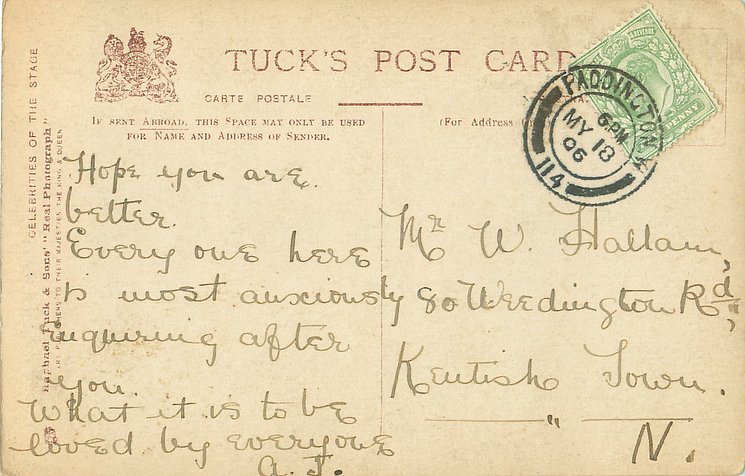 TUCK'S POST CARD
CARTE POSTALE
IF SENT ABROAD, THIS SPACE MAY ONLY BE USED
FOR NAME AND ADDRESS OF SENDER.
(For Address
PADDINGTON
6 PM
MY 18
06
114
PENNY
CELEBRITIES OF THE STAGE
Raphael Tuck & Sons' "Real Photograph"
TO THEIR MAJESTIES THE KING & QUEEN
Hope you are.
better.
Every one here
is most anxiously
enquiring after
you.
What it is to be
loved by everyone
A. J.
Mr W. Hallam,
80 Weedington Rd,
Kentish Town.
N.